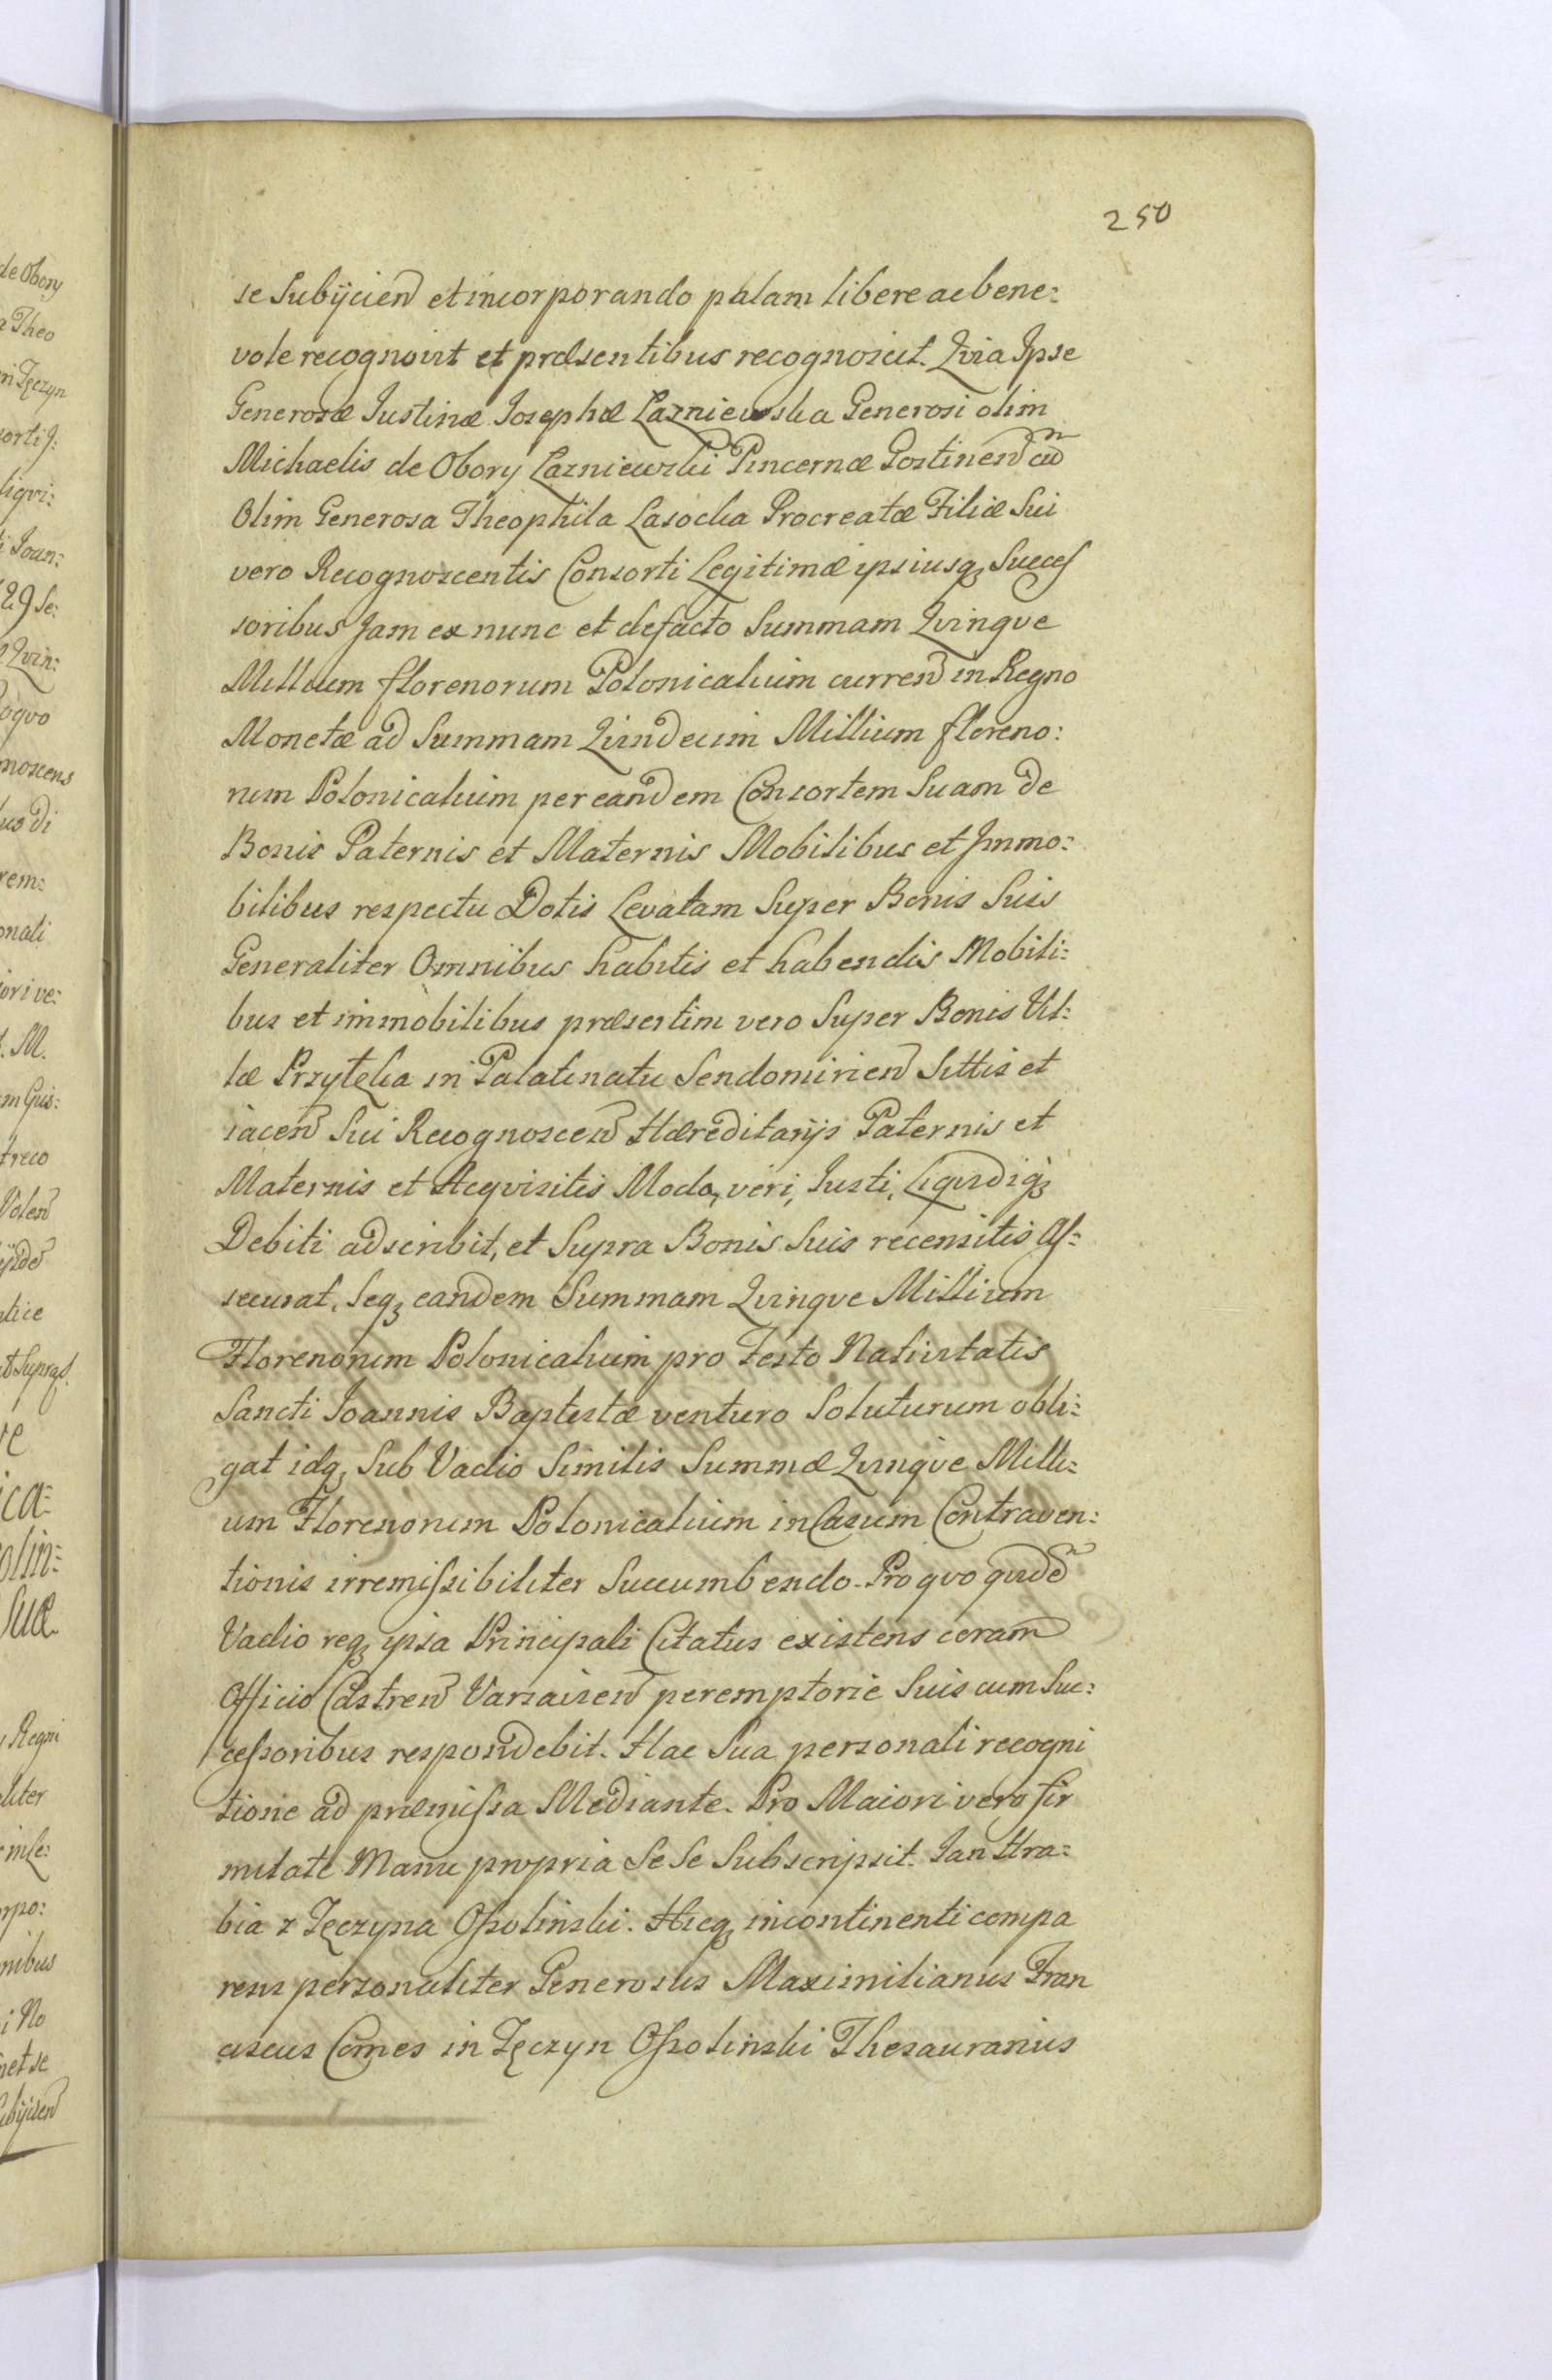 250
se Subÿcien et incorporando palam libere ac bene:
vole recognovit et præsentibus recognoscit. Qvia Ipse
Generosæ Iustinæ Iosephæ Lazniewska Generosi olim
Michaelis de Obory Lazniewski Pincernæ Gostinen cũ
Olim Generosa Theophila Lasocka Procreatæ Filiæ Sui
vero Recognoscentis Consorti Legitimæ ipsiusq; Succes
soribus Jam ex nunc et defacto Summam Qvinqve
Millium florenorum Polonicalium curren in Regno
Monetæ ad Summam Qvindecim Millium floreno:
rum Polonicalium per eandem Consortem Suam de
Bonis Paternis et Maternis Mobilibus et Immo:
bilibus respectu Dotis Levatam Super Bonis Suis
Generaliter Omnibus habitis et habendis Mobili:
bus et immobilibus præsertim vero Super Bonis Vil:
læ Przytyka in Palatinatu Sendomirien Sittis et
iacen Sui Recognoscen Hæreditarÿs Paternis et
Maternis et Acqvisitis Modo, veri, Iusti, Liqvidiq;
Debiti adscribit, et Supra Bonis Suis recensitis As:
securat, Seq; eandem Summam Qvinqve Millium
Florenorum Polonicalium pro Festo Nativitatis
Sancti Ioannis Baptistæ venturo Soluturum obli:
gat idq; Sub Vadio Similis Summæ Qvinqve Milli:
um Florenorum Polonicalium in Casum Contraven:
tionis irremissibiliter Succumbendo. Pro qvo qvidẽ
Vadio req; ipsa Principali Citatus existens coram
Officio Castren Varsavien peremptorie Suis cum Suc:
cessoribus respondebit. Hac Sua personali recogni
tione ad præmissa Mediante. Pro Maiori vero fir
mitate Manu propria Se Se Subscripsit. Jan Hra:
bia z Tęczyna Ossolinski. Hicq; incontinenti compa
rens personaliter Generosus Maximilianus Fran
ciscus Comes in Tęczyn Ossolinski Thesaurarius